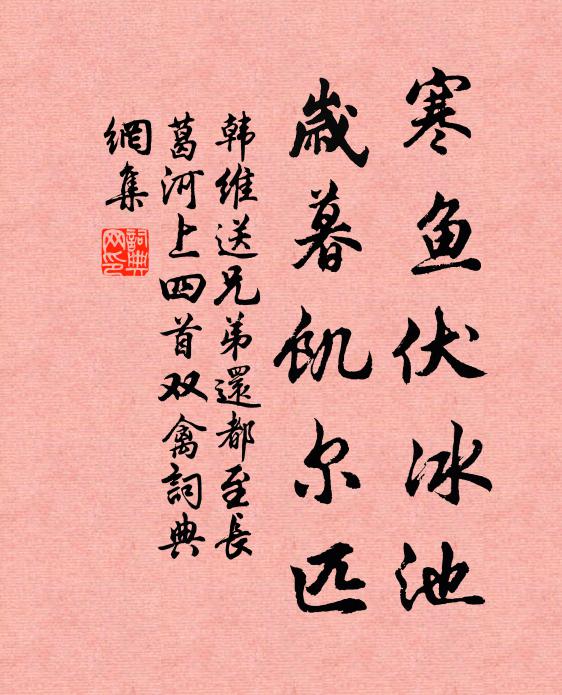 寒鱼伏冰池
歳暮飢尔匹
韩维送兄弟還都至長
葛河上四首双禽詞典
網集
詞典網印